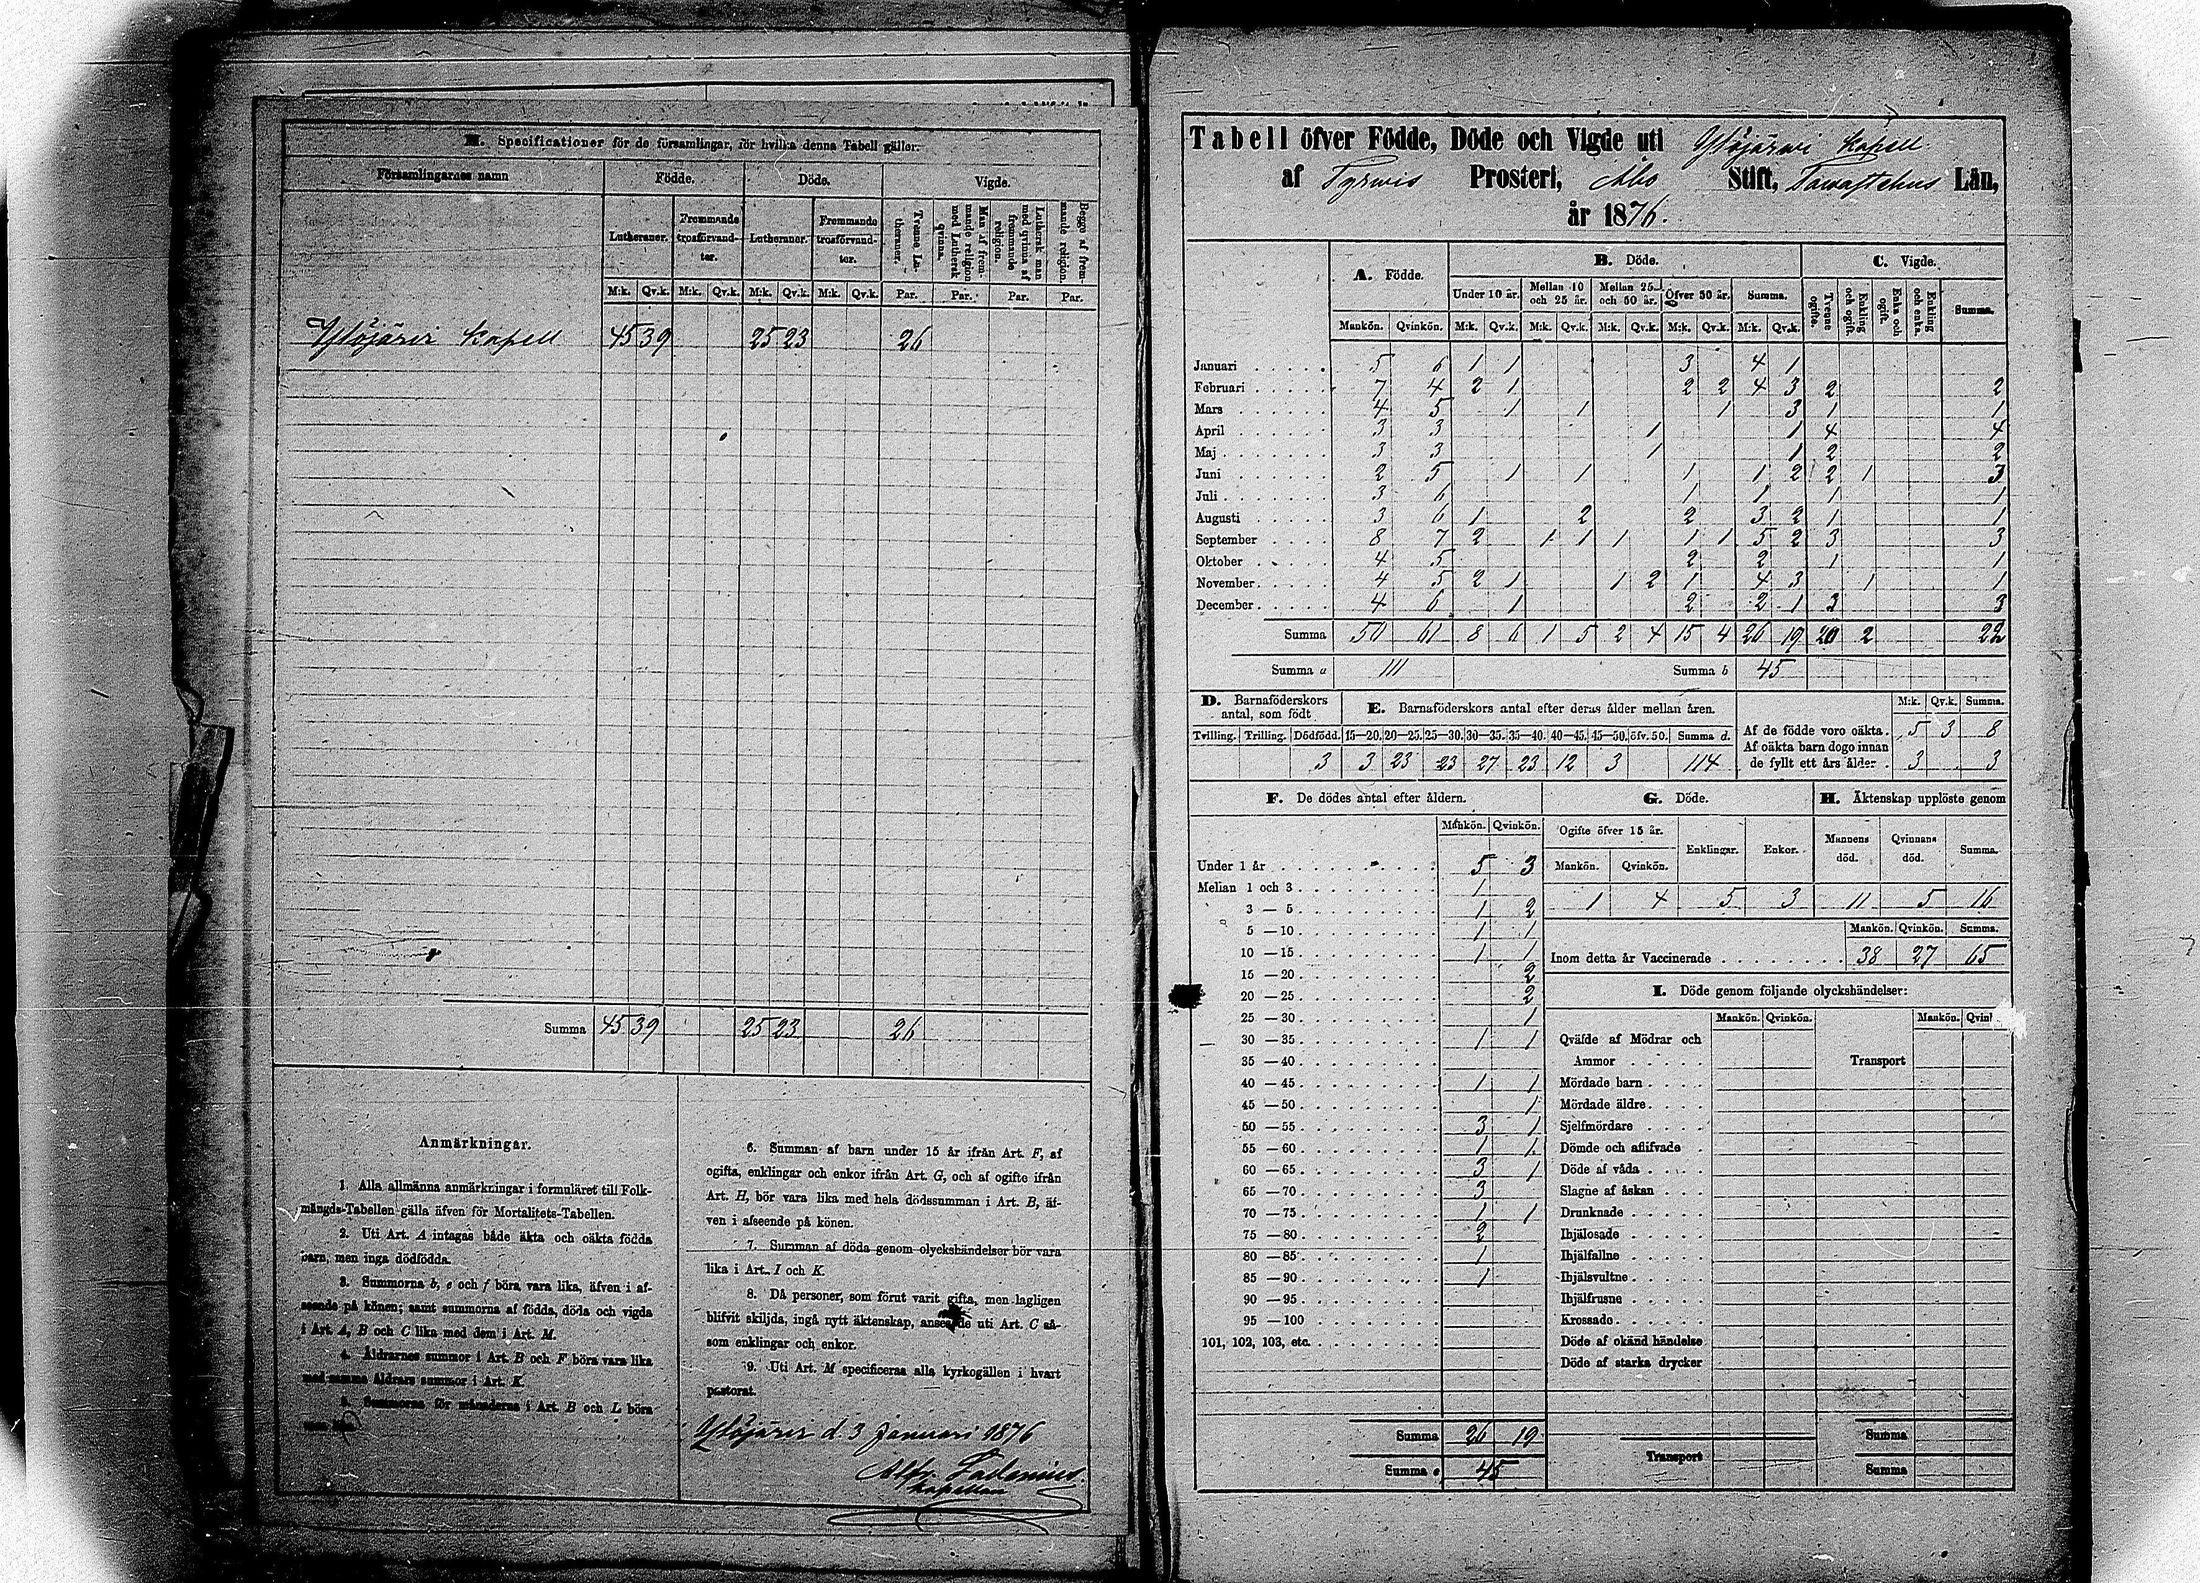 M. Specificationer för de församlingar, för hvilka denna Tabell gäller.
Församlingarnes namn Födde. Döde. Vigde.
Lutheraner. Fremmande trosförvandter. Lutheraner. Fremmande trosförvandter. Tvenne Lutheraner. Man af fremmande religion med Luthersk qvinna. Luthersk man med qvinna af fremmande religion. Begge af fremmande religion.
M:k. Qv.k. M:k. Qv.k. M:k. Qv.k. M:k. Qv.k. Par. Par. Par. Par.
Ylöjärvi kapell 45 39 25 23 26
Summa 45 39 25 23 26
Anmärkningar.
1. Alla allmänna anmärkningar i formuläret till Folk-
mängds-Tabellen gälla äfven för Mortalitets-Tabellen.
2. Uti Art. A intagas både äkta och oäkta födda
barn, men inga dödfödda.
3. Summorna b, e och f böra vara lika, äfven i af-
seende på könen; samt summorna af födda, döda och vigda
i Art. A, B och C lika med dem i Art. M.
4. Åldrarnes summor i Art. B och F böra vara lika
med samma åldrars summor i Art. K.
5. Summorna för månaderna i Art. B och L böra
vara lika.
6. Summan af barn under 15 år ifrån Art. F, af
ogifta, enklingar och enkor ifrån Art. G, och af ogifte ifrån
Art. H, bör vara lika med hela dödssumman i Art. B, äf-
ven i afseende på könen.
7. Summan af döda genom olyckshändelser bör vara
lika i Art. I och K.
8. Då personer, som förut varit gifta, men lagligen
blifvit skiljda, ingå nytt äktenskap, anseende uti Art. C så-
som enklingar och enkor.
9. Uti Art. M specificeras alla kyrkogällen i hvart
pastorat.
Ylöjärvi d. 3 Januari 1876
kapellan
Tabell öfver Födde, Döde och Vigde uti Ylöjärwi kapell
af Tyrwis Prosteri, Åbo Stift, Tawastehus Län,
år 1876.
A. Födde. B. Döde. C. Vigde.
Under 10 år. Mellan 10 och 25 år. Mellan 25 och 50 år. Öfver 50 år. Summa. Tvenne ogifte. Enkling och ogift. Enka och ogift. Enkling och enka. Summa.
Mankön. Qvinkön. M:k. Qv.k. M:k. Qv.k. M:k. Qv.k. M:k. Qv.k. M:k. Qv.k.
Januari 5 6 1 1 3 4 1
Februari 7 4 2 1 2 2 4 3 2 2
Mars 4 5 1 1 1 3 1 1
April 3 3 1 1 4 4
Maj 3 3 1 1 2 2
Juni 2 5 1 1 1 1 2 2 1 3
Juli 3 6 1 1 1 1
Augusti 3 6 1 2 2 3 2 1 1
September 8 7 2 1 1 1 1 1 5 2 3 3
Oktober 4 5 2 2 1 1
November 4 5 2 1 1 2 1 4 3 1 1
December 4 6 1 2 2 1 3 3
Summa 50 61 8 6 1 5 2 4 15 4 26 19 20 2 22
Summa a 111 Summa b 45
D. Barnaföderskors antal, som födt
Tvilling. Trilling. Dödfödd.
3
E. Barnaföderskors antal efter deras ålder mellan åren.
15—20. 20—25. 25—30. 30—35. 35—40. 40—45. 45—50. öfv. 50. Summa d.
3 23 23 27 23 12 3 114
M:k. Qv.k. Summa.
Af de födde voro oäkta. 5 3 8
Af oäkta barn dogo innan
de fyllt ett års ålder. 3 3
F. De dödes antal efter åldern.
Mankön. Qvinkön.
Under 1 år 5 3
Mellan 1 och 3 1
3 — 5 1 2
5 — 10 1 1
10 — 15 1 1
15 — 20 2
20 — 25 2
25 — 30 1
30 — 35 1 1
35 — 40
40 — 45 1 1
45 — 50 1
50 — 55 3 1
55 — 60 1 1
60 — 65 3 1
65 — 70 3
70 — 75 1 1
75 — 80 2
80 — 85 1
85 — 90 1
90 — 95
95 — 100
101, 102, 103, etc.
Summa 26 19
Summa e 45
G. Döde.
Ogifte öfver 15 år. Enklingar. Enkor.
Mankön. Qvinkön.
1 4 5 3
H. Äktenskap upplöste genom
Mannens död. Qvinnans död. Summa.
11 5 16
Mankön. Qvinkön. Summa.
Inom detta år Vaccinerade 38 27 65
I. Döde genom följande olyckshändelser:
Mankön. Qvinkön. Mankön. Qvink
Qväfde af Mödrar och
Ammor Transport
Mördade barn
Mördade äldre
Sjelfmördare
Dömde och aflifvade
Döde af våda
Slagne af åskan
Drunknade
Ihjälosade
Ihjälfallne
Ihjälsvultne
Ihjälfrusne
Krossade
Döde af okänd händelse
Döde af starka drycker
Summa
Transport
Summa